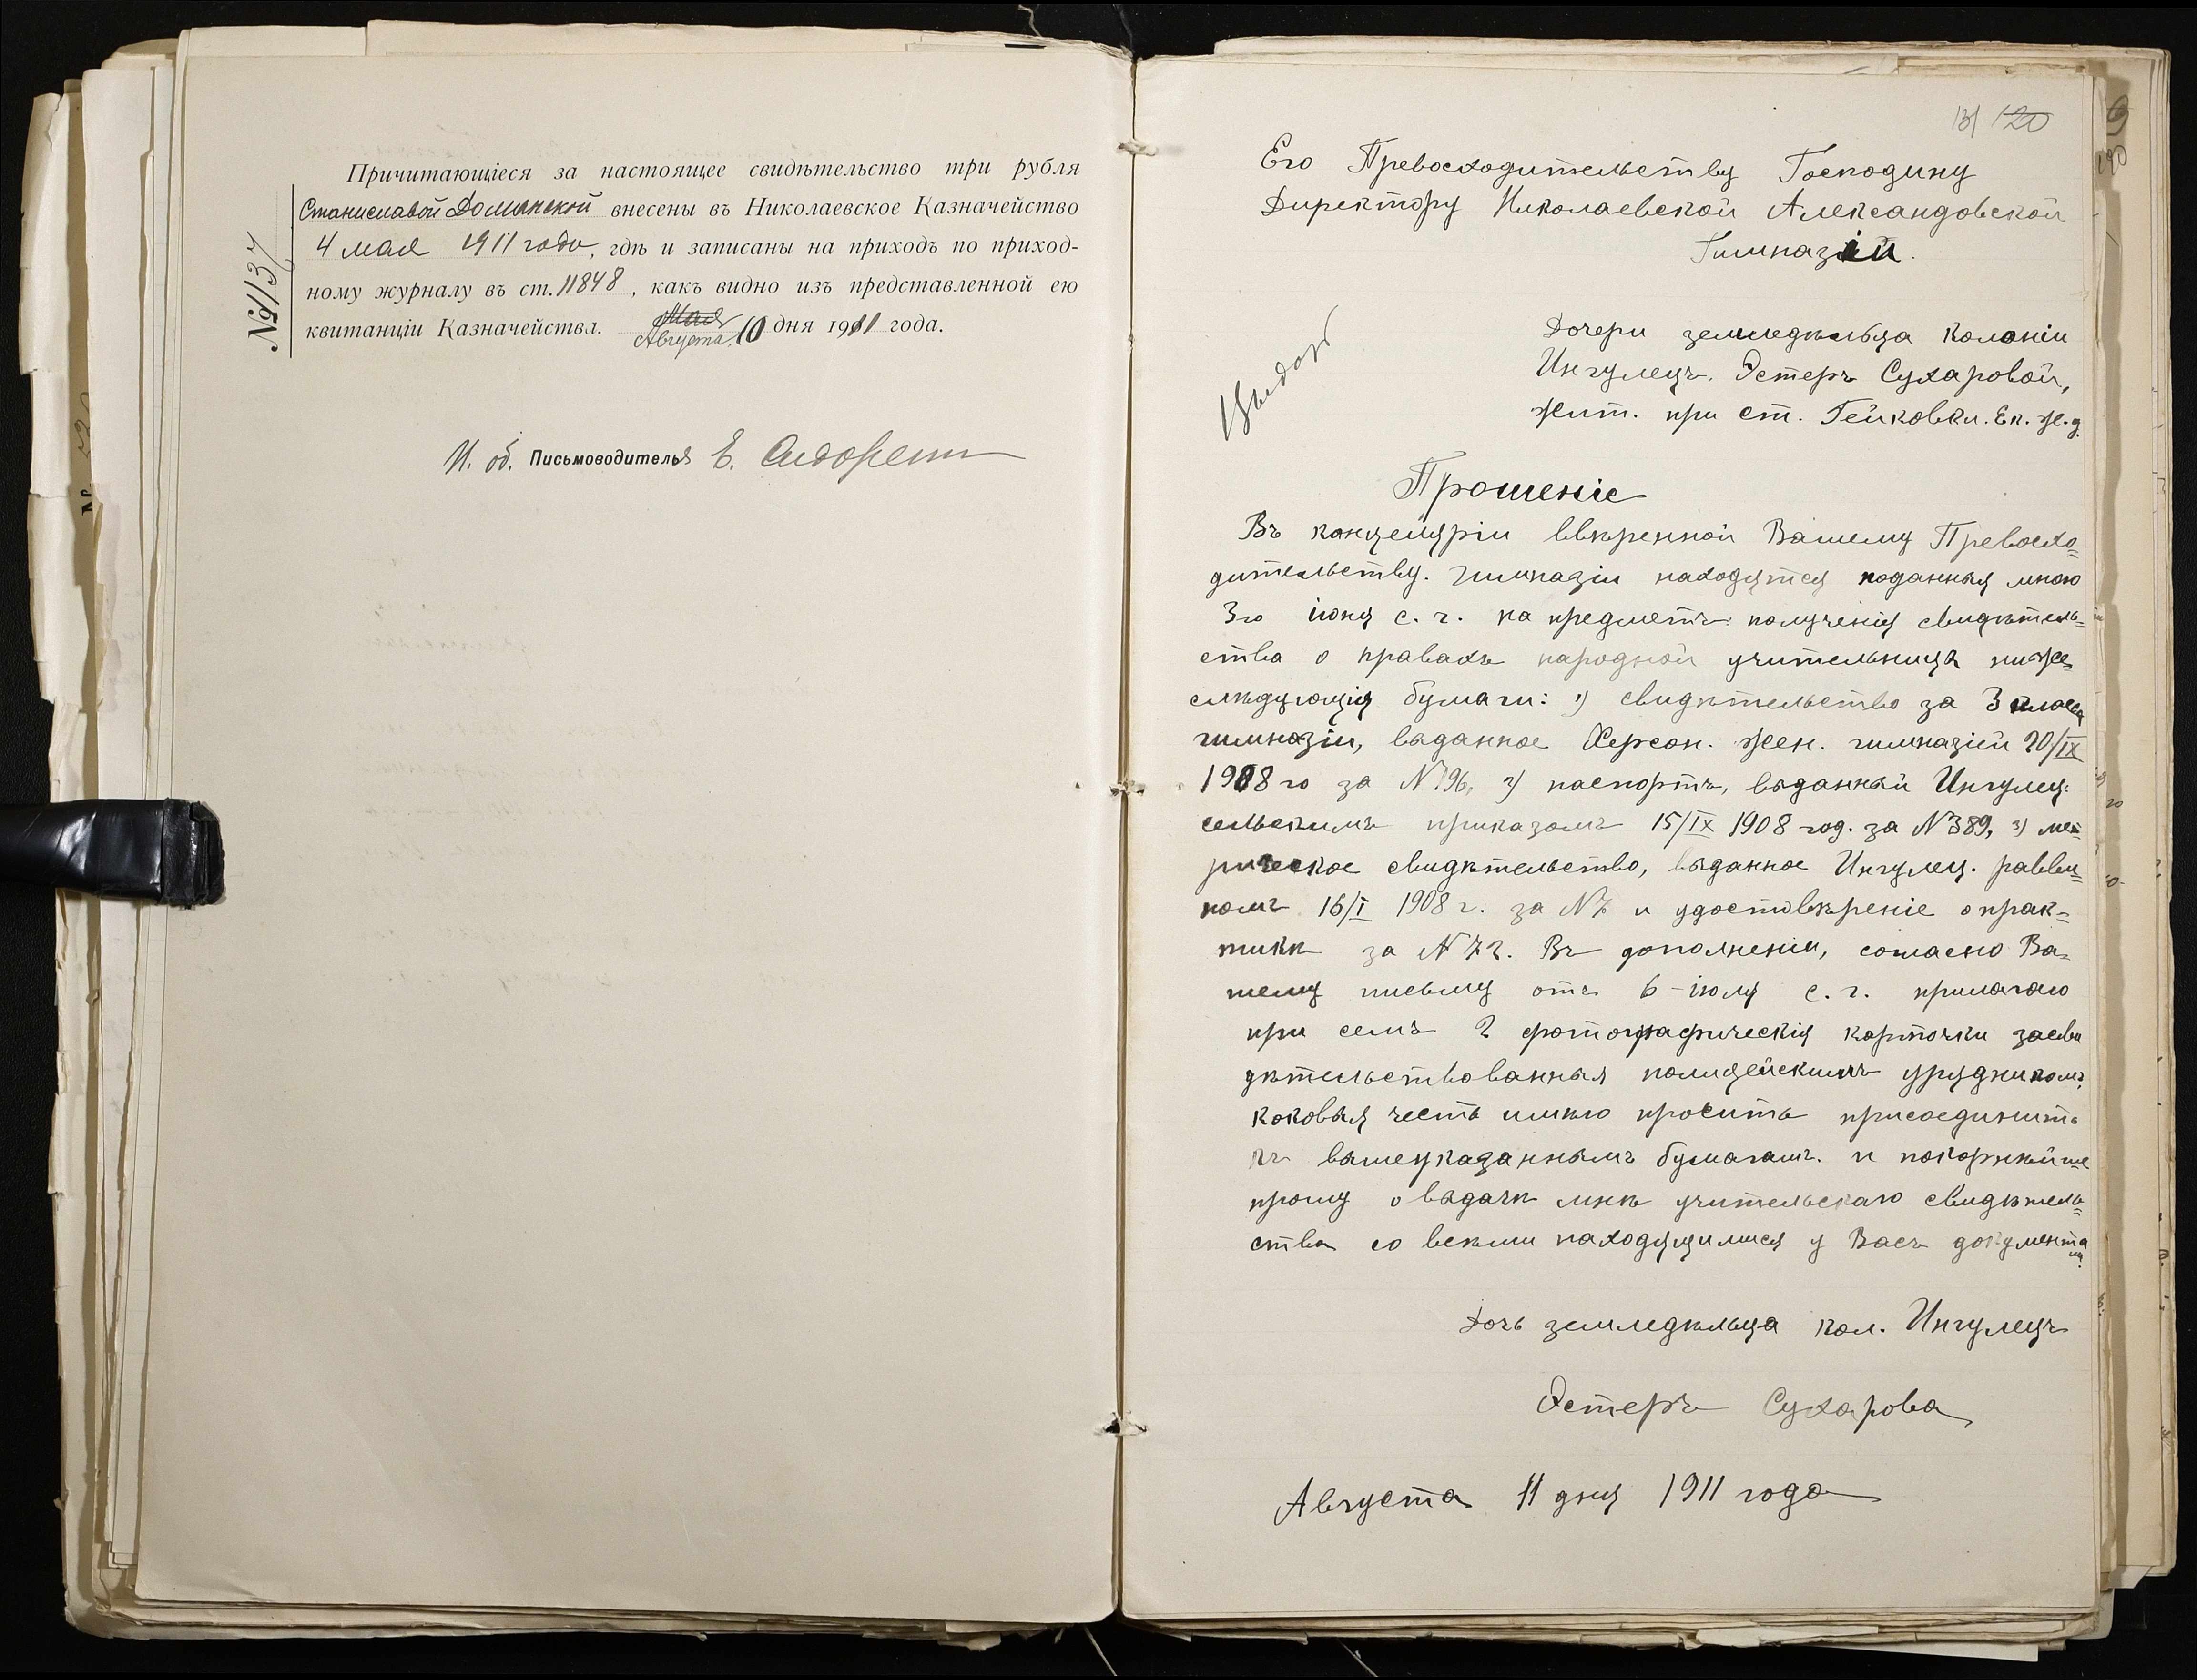 Причитающіеся за настоящее свидѣтельство три рубля
Станиславой Доманской внесены въ Николаевское Казначейство
4 мая 1911 года, гдѣ и записаны на приходъ по приход-
ному журналу въ ст. 11848, какъ видно изъ представленной ею
квитанціи Казначейства. Мая
Августа 10 дня 1911 года.
№ 1137
И. об. Письмоводителя Е.
131 120
Его Превосходительству Господину
Директору Николаевской Александовской
Гимназіи.
Дочери земледѣльца колоніи
Ингулецъ. Эстеръ Сухаровой,
жит. при ст. Гейковки. Ек. ж. д.
Прошеніе
Въ канцеляріи ввѣренной Вашему Превосхо=
дительству. гимназіи находятся поданныя мною
3го іюня с. г. на предметъ полученія свидѣтель=
ства о правахъ народной учительницы ниже
слѣдующія бумаги: 1) свидѣтельство за 3 класса
гимназіи, выданное Херсон. жен. гимназіей 20/IX
1908 го за N 796, 2) паспортъ, выданный Ингулец.
сельскимъ приказомъ 15/IX 1908 год. за N 389, 3) мет=
рическое свидѣтельство, выданное Ингулец. равви=
номъ 16/I 1908 г. за N 7 и удостовѣреніе о прак=
тикѣ за N 72. Въ дополненіи, согласно Ва=
шему письму отъ 6-іюля с. г. прилагаю
при семъ 2 фотографическія карточки засви
дѣтельствованныя полицейскимъ урядникомъ,
каковыя честь имѣю просить присоединить
къ вышеуказаннымъ бумагамъ. и покорнѣйше
прошу о выдачѣ мнѣ учительскаго свидѣтель=
ства со всѣми находящимися у Васъ документа
ми.
Дочь земледѣльца кол. Ингулецъ
Эстеръ Сухарова
Августа 11 дня 1911 года